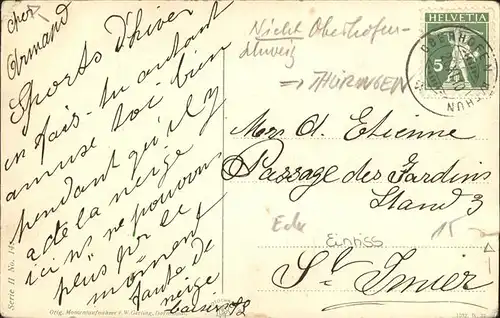 cher
Armand
Sports d'hiver
en fais-tu autant
amuse toi bien
pendant qu'il y
a de la neige
ici ns ne pouvons
plus pr le
moment
faute de
neige
Nicht Oberhofen-
→ THÜRINGEN
HELVETIA
5
OBERHOFEN
THUN
Mrs d. Etienne
Passage des Jardins
Stand 3
Ecke
Einriss
St Imier
Serie II No. 14
Orig. Momentaufnahme v. W. Gerling,